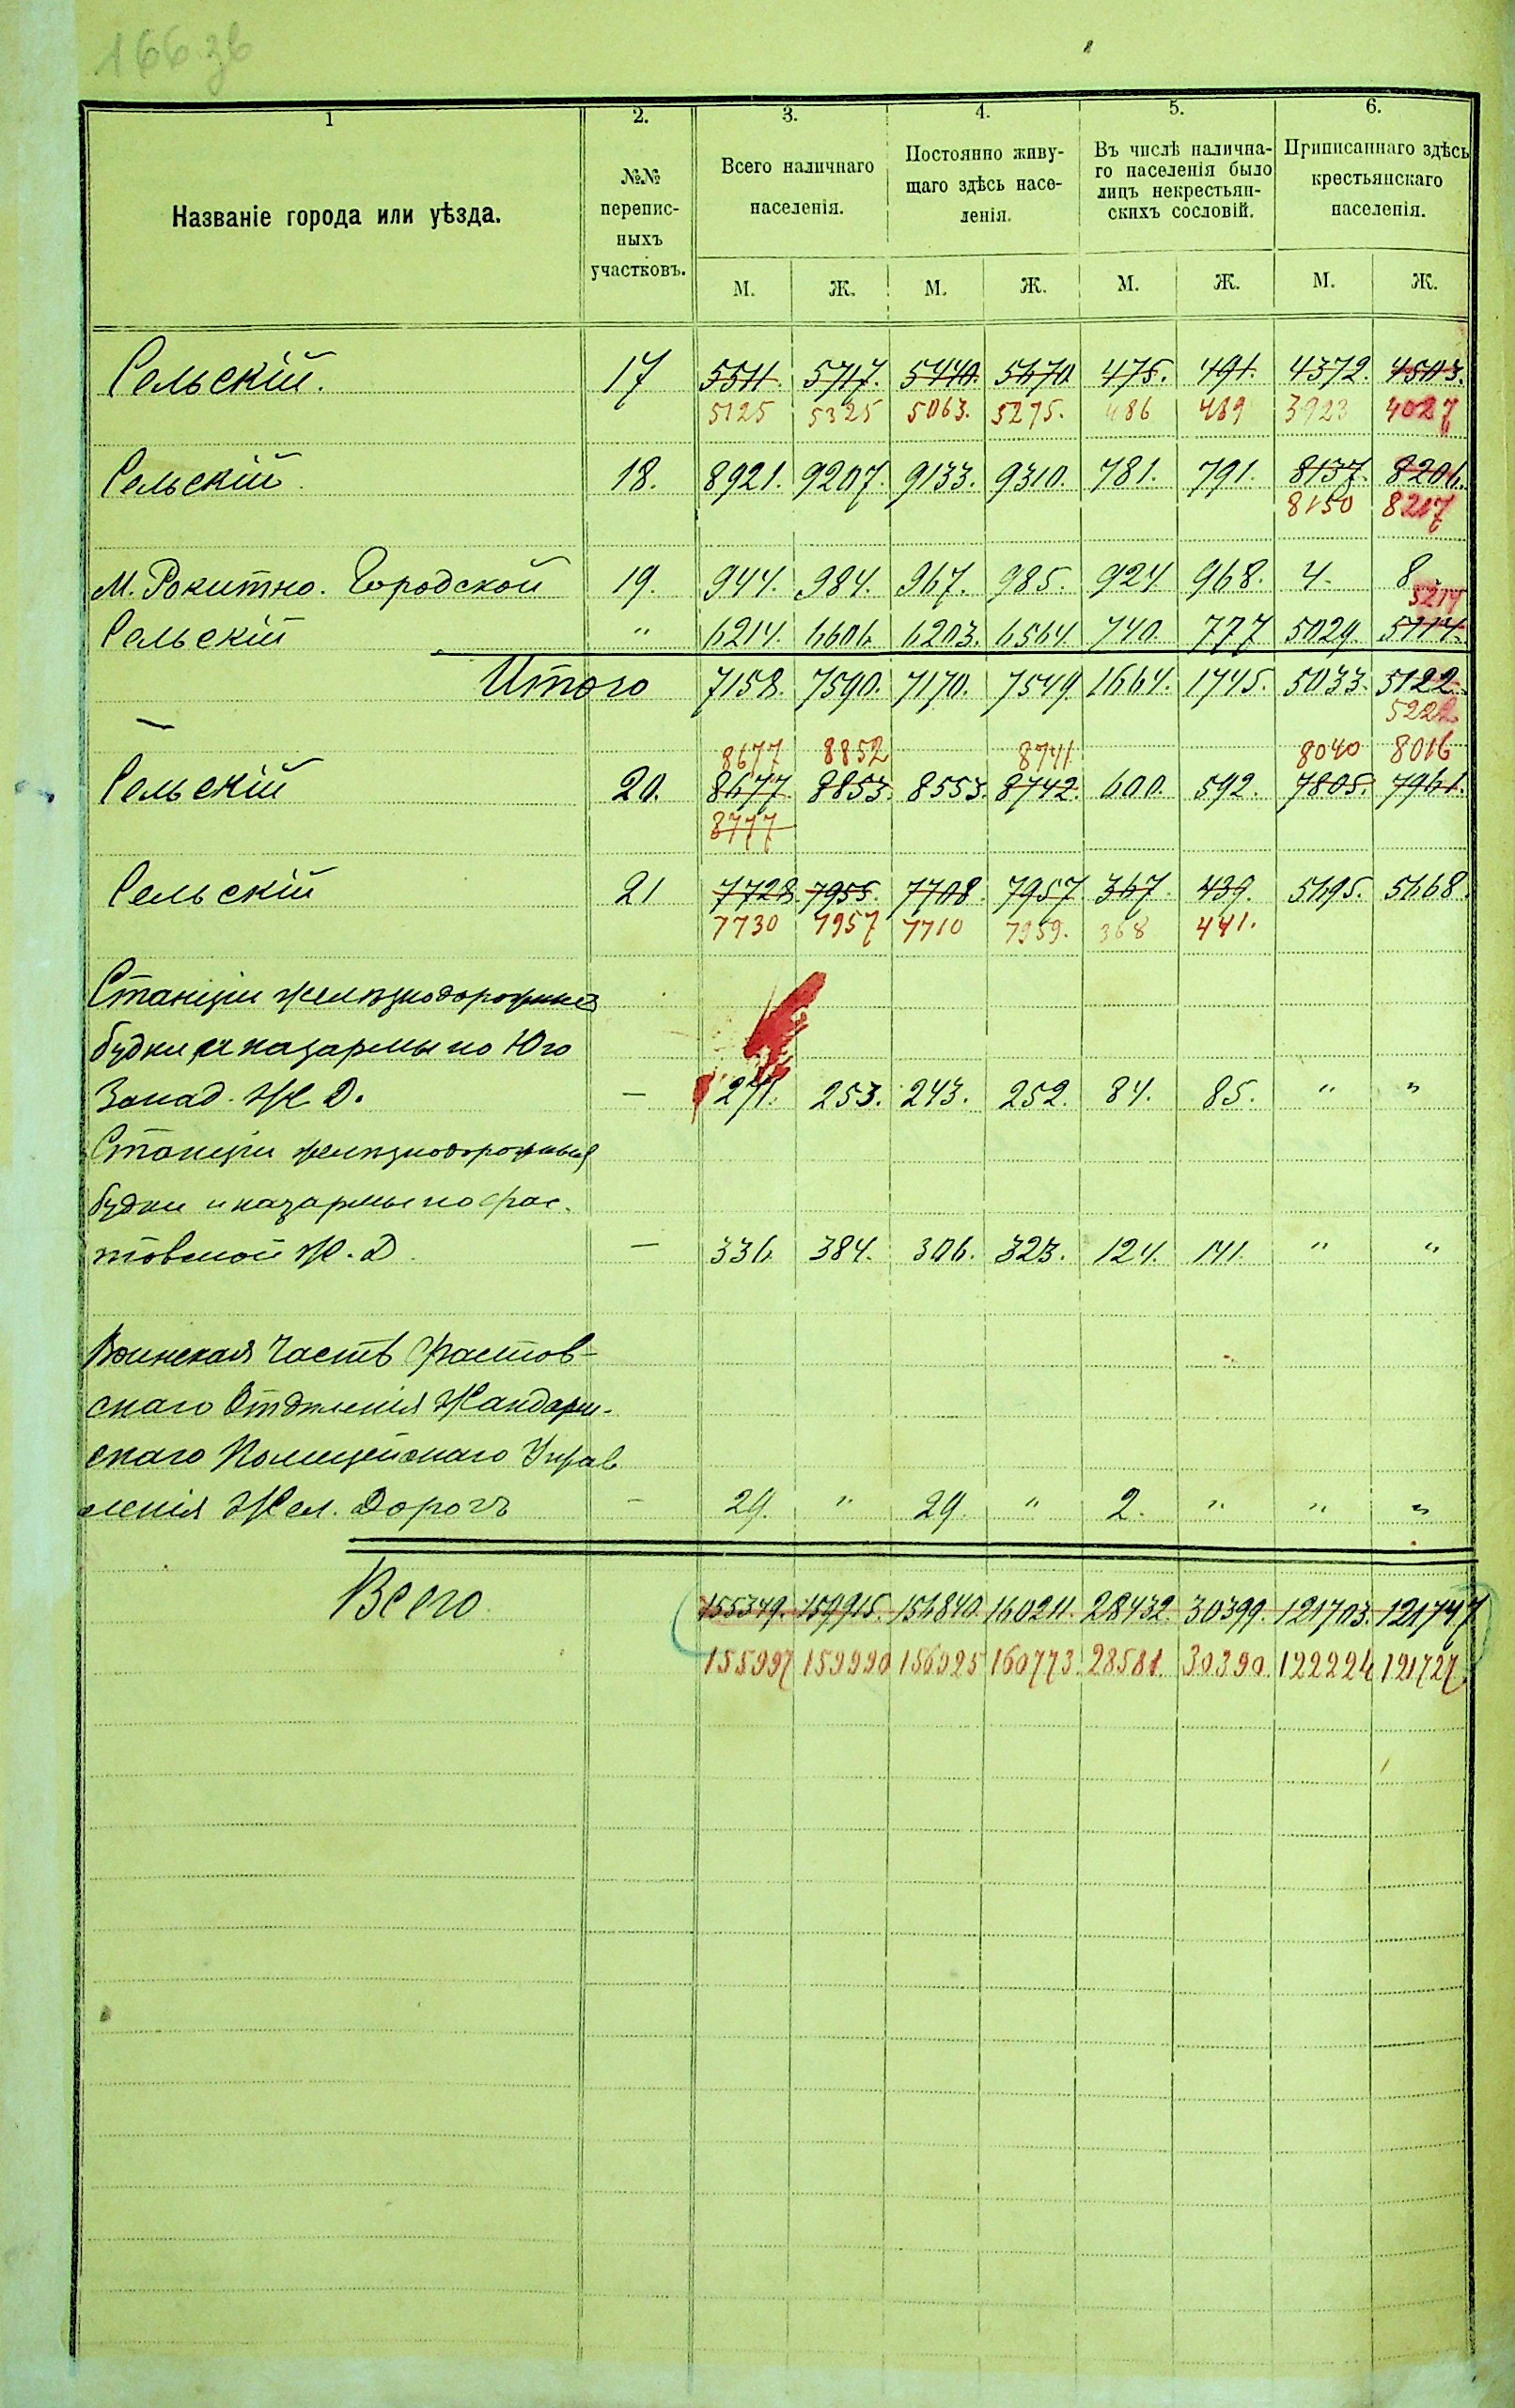 166 зв
1 2. 3. 4. 5. 6.
Названіе города или уѣзда.
№№
перепис-
ныхъ
участковъ.
Всего наличнаго
населенія.
Постоянно живу-
щаго здѣсь насе-
ленія.
Въ числѣ налична-
го населенія было
лицъ некрестьян-
скихъ сословій.
Приписаннаго здѣсь
крестьянскаго
населенія.
М. Ж. М. Ж. М. Ж. М. Ж.
Сельскій. 17 5511. 5717. 5440. 5670 475. 491. 4372. 4503.
5125 5325 5063. 5275. 486 489 3923 4027
Сельскій 18. 8921. 9207. 9133. 9310. 781. 791. 8137. 8206.
8150 8217
М. Рокитно. Городской 19. 944. 984. 967. 985. 924 968. 4. 8
5214
Сельскій " 6214. 6606 6203. 6564 740. 777 5029. 5114.
Итого 7158. 7590. 7170. 7549 1664. 1745. 5033. 5122
5222
8677 8852 8741 8040 8016
Сельскій 20. 8677. 8853. 8553. 8742. 600. 592. 7805. 7961.
8777
Сельскій 21 7728. 7955. 7708. 7957. 367. 439. 5695. 5668.
7730 7957 7710 7959. 368 441.
Станціи железнодорожныя
будки и казармы по Юго
Запад. Ж. Д. — 271. 253. 243. 252. 84. 85. " "
Станціи железнодорожныя
будки и казармы по Фас-
товской Ж. Д. — 336 384. 306. 323. 124. 141. " "
Воинская Часть Фастов-
скаго Отдѣленія Жандарм-
скаго Полицейскаго Управ
ленія Жел. Дорогъ — 29. " 29. " 2. " " "
Всего 155349. 159915. 156840. 160211. 28432. 30399. 121703. 121747
155997 159990 156925 160773. 28581. 30390. 122224 121727